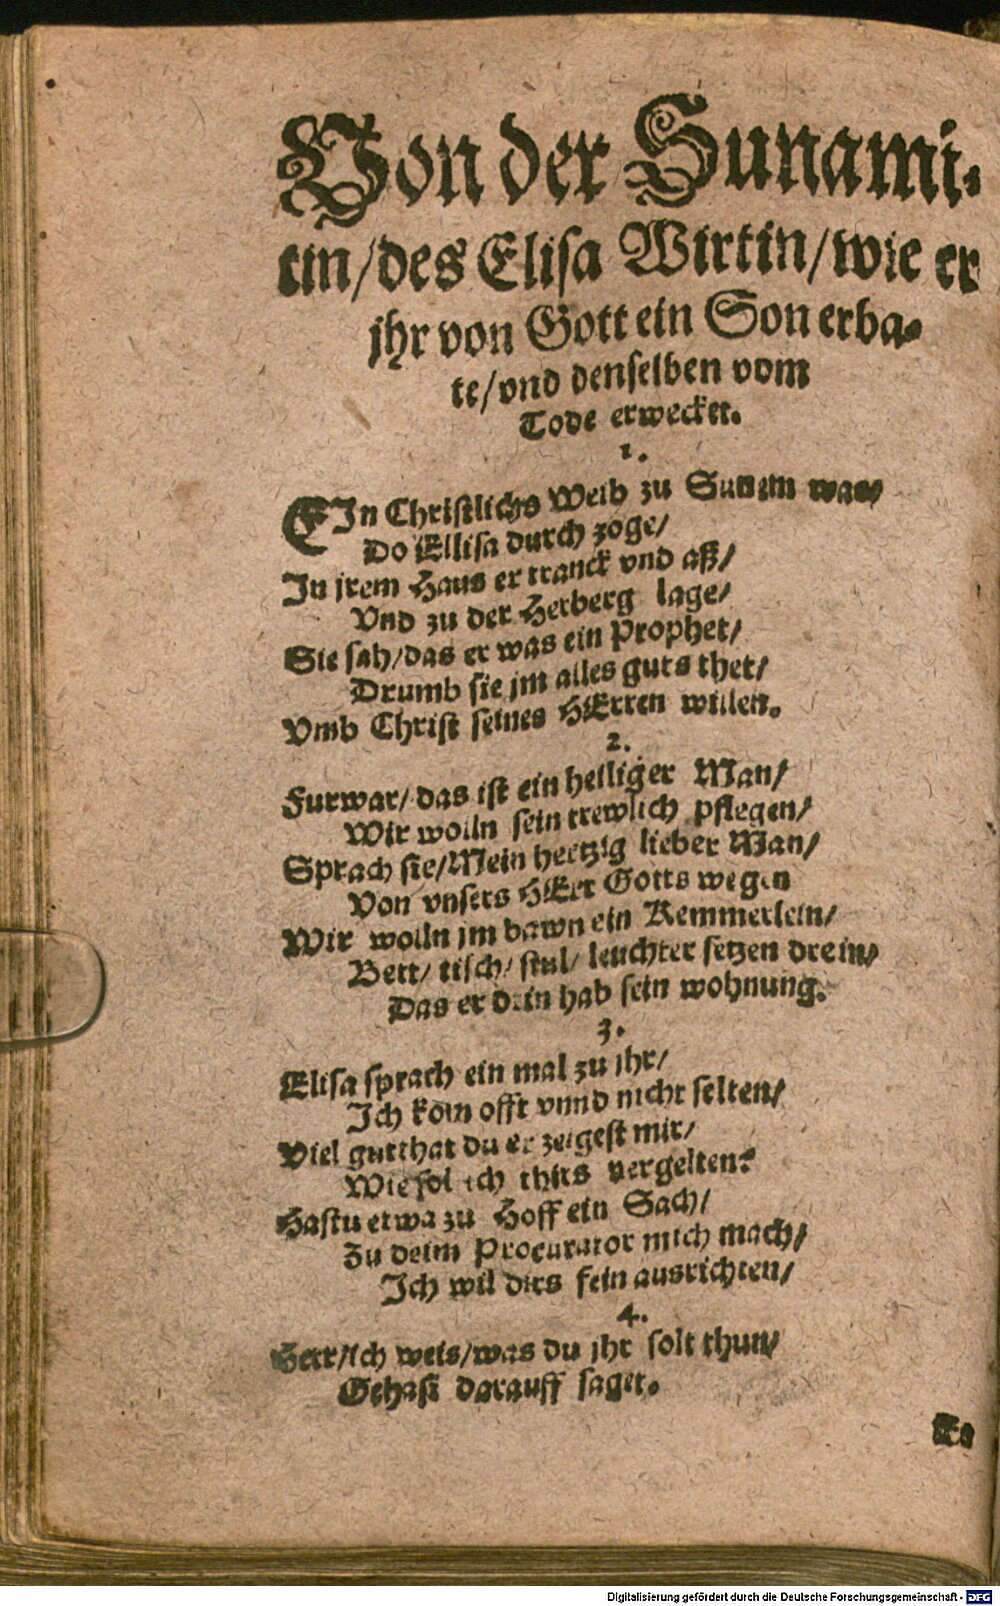 Von der Sunami⸗
tin/des Elisa Wirtin/wie er
jhr von Gott ein Son erba⸗
te/vnd denselben vom
Tode erwecket.
1.
EIn Christlichs Weib zu Sunem was/
Do Ellisa durch zoge/
In jrem Haus er tranck vnd aß/
Vnd zu der Herberg lage/
Sie sah/das er was ein Prophet/
Drumb sie jm alles guts thet/
Vmb Christ seines HErren willen.
2.
Furwar/das ist ein heiliger Man/
Wir wolln sein trewlich pflegen/
Sprach sie/Mein hertzig lieber Man/
Von vnsers HEer Gotts wegen
Wir wolln jm bawn ein Kemmerlein/
Bett/tisch/stul/leuchter setzen drein/
Das er drin hab sein wohnung.
3.
Elisa sprach ein mal zu jhr/
Ich kom offt vnnd nicht selten/
Viel gutthat du erzeigest mir/
Wie sol ich thirs vergelten?
Hastu etwa zu Hoff ein Sach/
Zu deim Procurator mich mach/
Ich wil dirs fein ausrichten/
4.
Herr/ich weis/was du jhr solt thun/
Gehasi darauff saget.
Es
Digitalisierung gefördert durch die Deutsche Forschungsgemeinschaft - DFG